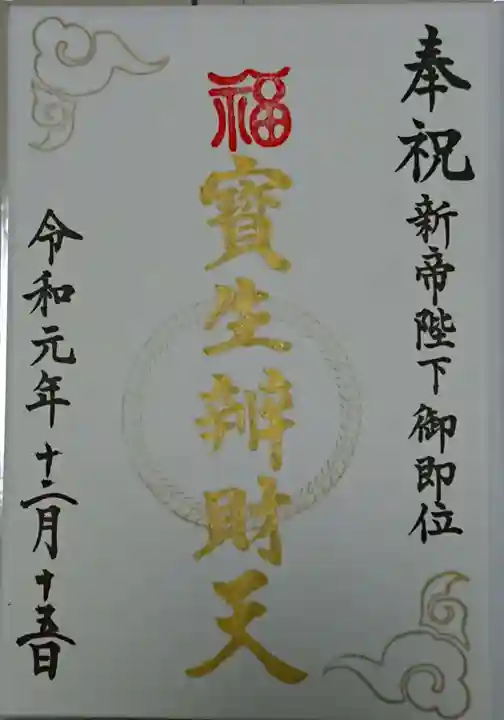 奉祝新帝陛下御即位
福
寶生辨財天
令和元年十二月十五日